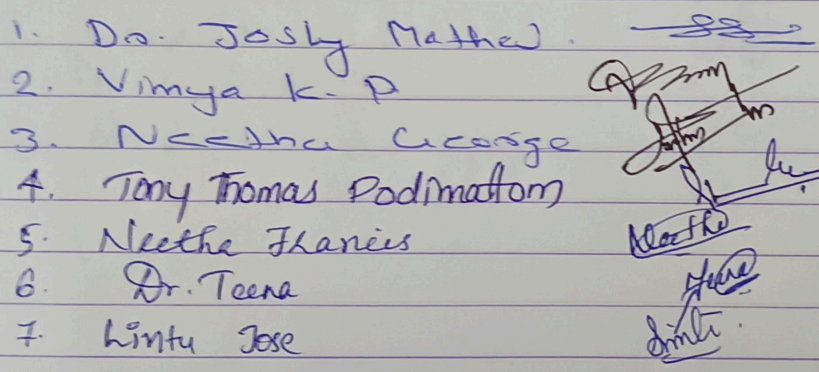 1. Dr. Joshy Mathew.
2. Vimya K. P
3. Neetha George
4. Tony Thomas Podimattom
5. Neetha Francis Neetha
6. Dr. Teena Teena
7. Lintu Jose